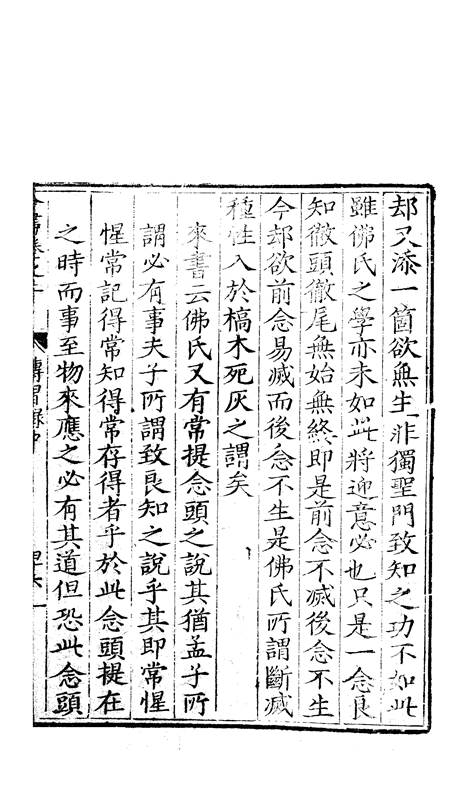 却又添一箇欲無生非獨聖門致知之功不如此
雖佛氏之學亦未如此將迎意必也只是一念良
知徹頭徹尾無始無終即是前念不滅後念不生
今却欲前念易滅而後念不生是佛氏所謂斷滅
種性入於槁木死灰之謂矣
來書云佛氏又有常提念頭之說其猶孟子所
謂必有事夫子所謂致良知之說乎其即常惺
惺常記得常知得常存得者乎於此念頭提在
之時而事至物來應之必有其道但恐此念頭
全書卷之二
傳習錄中